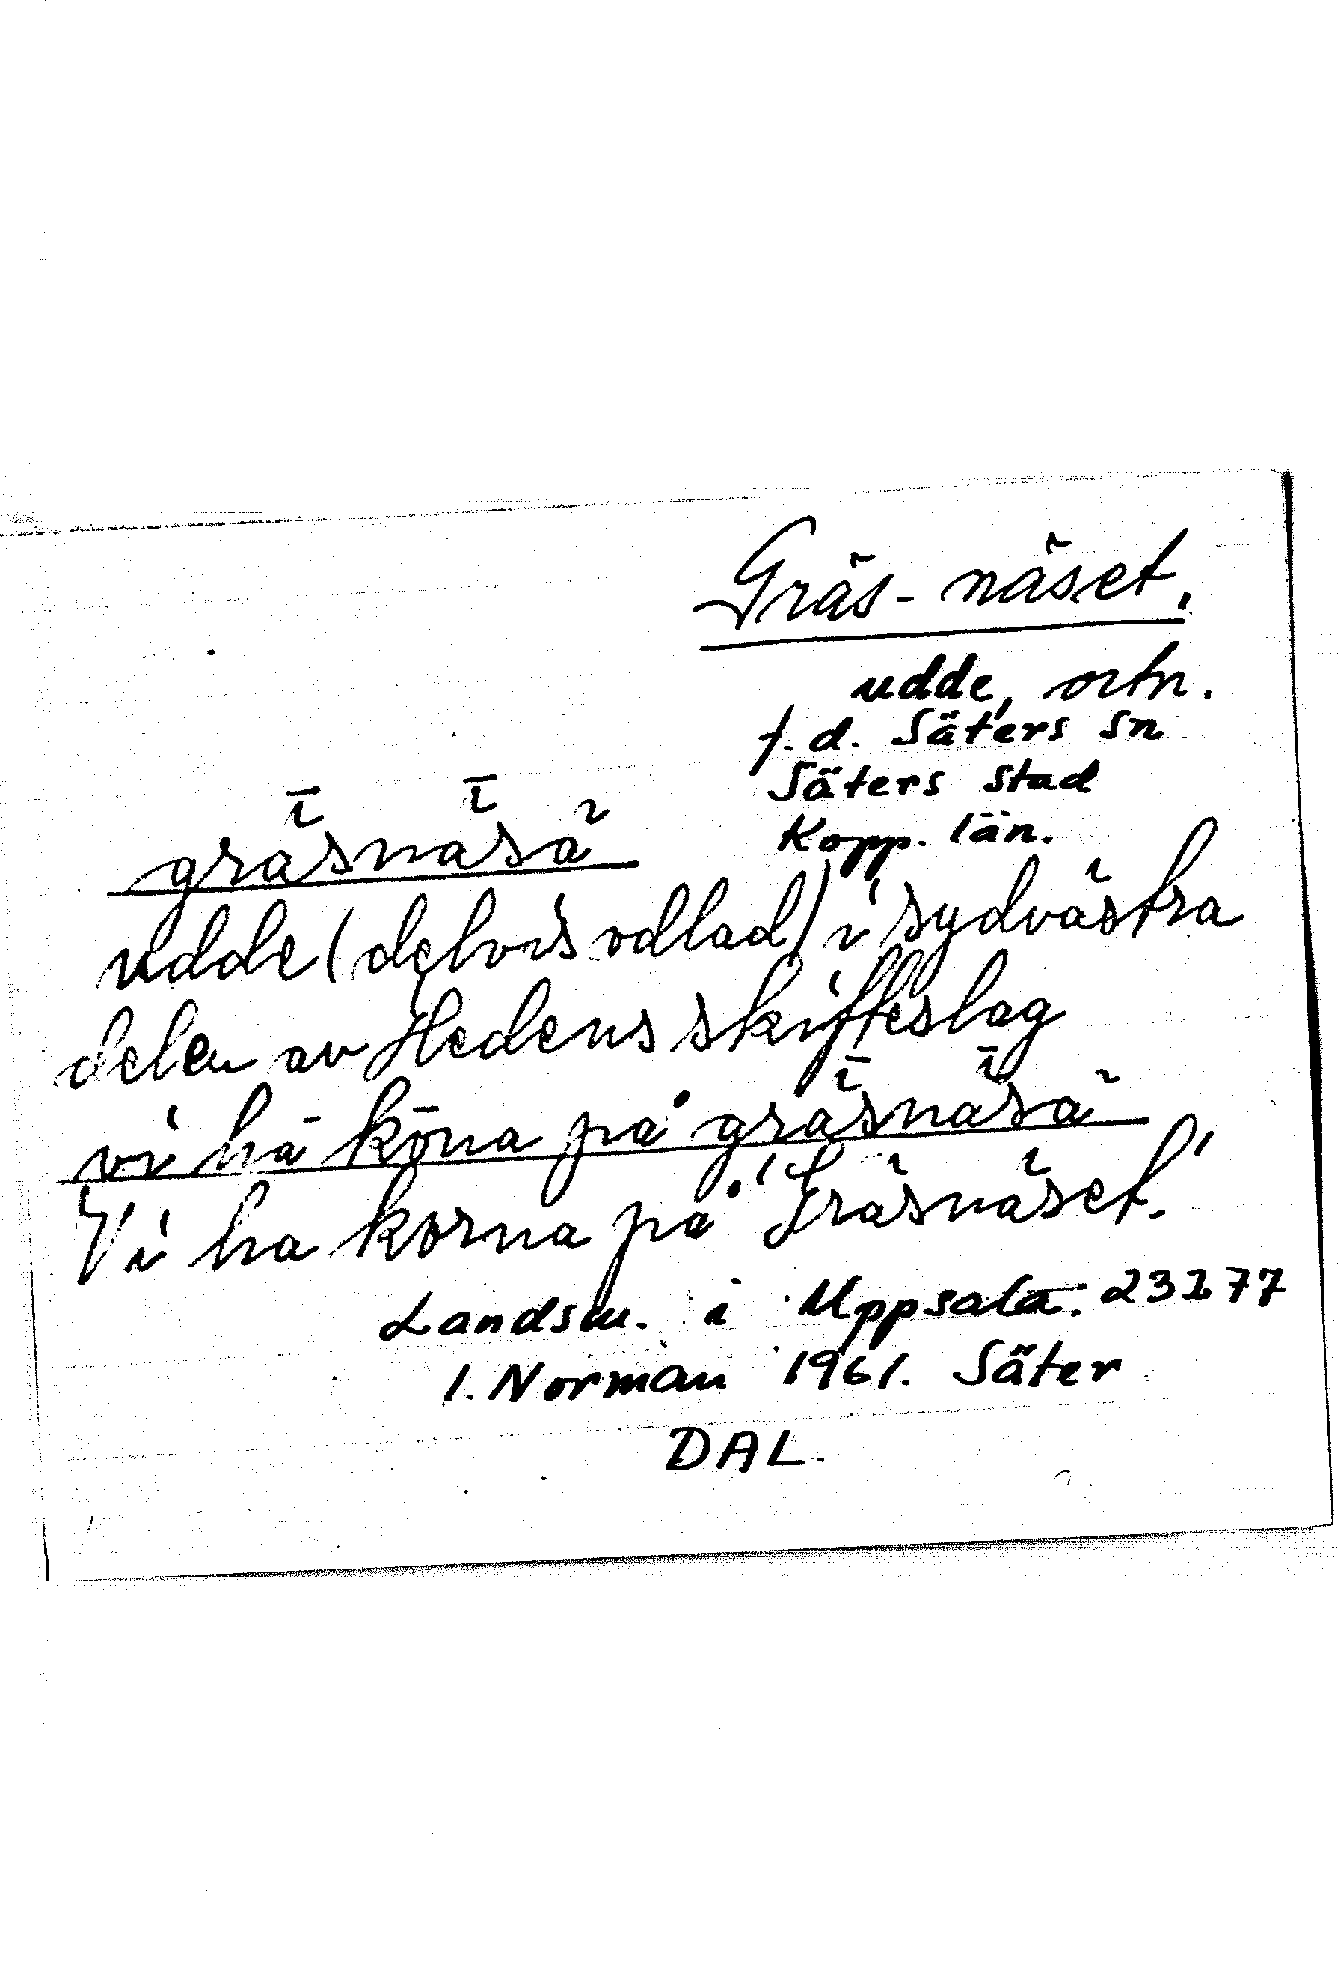 Gräs-näset.
udde, ortn.
f.d. Säters sn
Säters stad
Kopp. län.
grǟsnǟsä
udde (delvis odlad) i sydvästra
delen av Hedens skifteslag
vi hā kōna på grǟsnǟsä
Vi ha korna på 'Gräsnäset.'
Landsm. i Uppsala: 23277
I. Norman 1961. Säter
DAL.